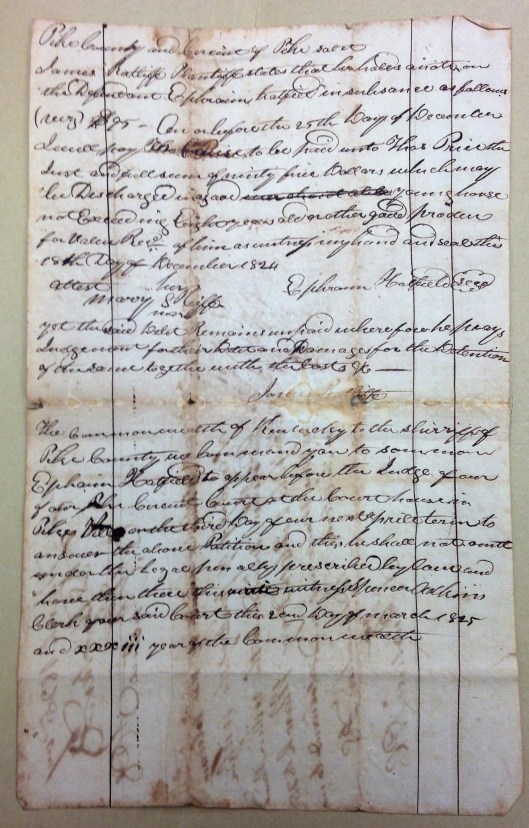 Pike County and Circuit of Pike sct
James Ratliff Plantiff states that he holds a note on
the Defendant Ephraim hatfield in substance as follows
(viz) $95 - On or before the 25th Day of December
I will pay to be paid unto Thos Price the
Just and full sum of ninty five Dollars which may
be Discharged in good young horse
not Exceeding Eight years old or other good
for Value Recd of him as witness my hand and seal this
18th Day of December 1824
attest Ephraim Hatfield seal
yet the said Debt Remains unpaid wherefore he prays
Judgement for their Debt and Damages for the Detention
of the same together with the Costs &c
James
The Commonwealth of Kentucky to the sherriff of
Pike County we Command you to sommon
Ephraim Hatfield to appear before the Judge of our
of our Pike Circuit Court at the Court house in
on the third Day of our next Aprile term to
answer the above Petition and this he shall not omit
under the legal penalty prescribed by law and
have then there this witness Spencer Adkins
Clerk of our said Court this 2nd Day of March 1825
and xxxiii year of the Commonwealth